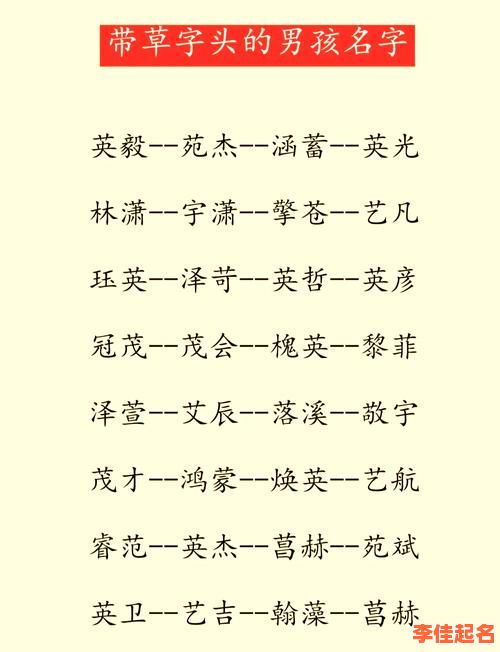 带草字头的男孩名字
英毅--苑杰--涵蓄--英光
林潇--宇潇--擎苍--艺凡
珏英--泽苛--英哲--英彦
冠茂--茂会--槐英--黎菲
泽萱--艾辰--落溪--敬宇
茂才--鸿蒙--焕英--艺航
睿范--英杰--菖赫--苑斌
英卫--艺吉--翰藻--菖赫
李佳起名